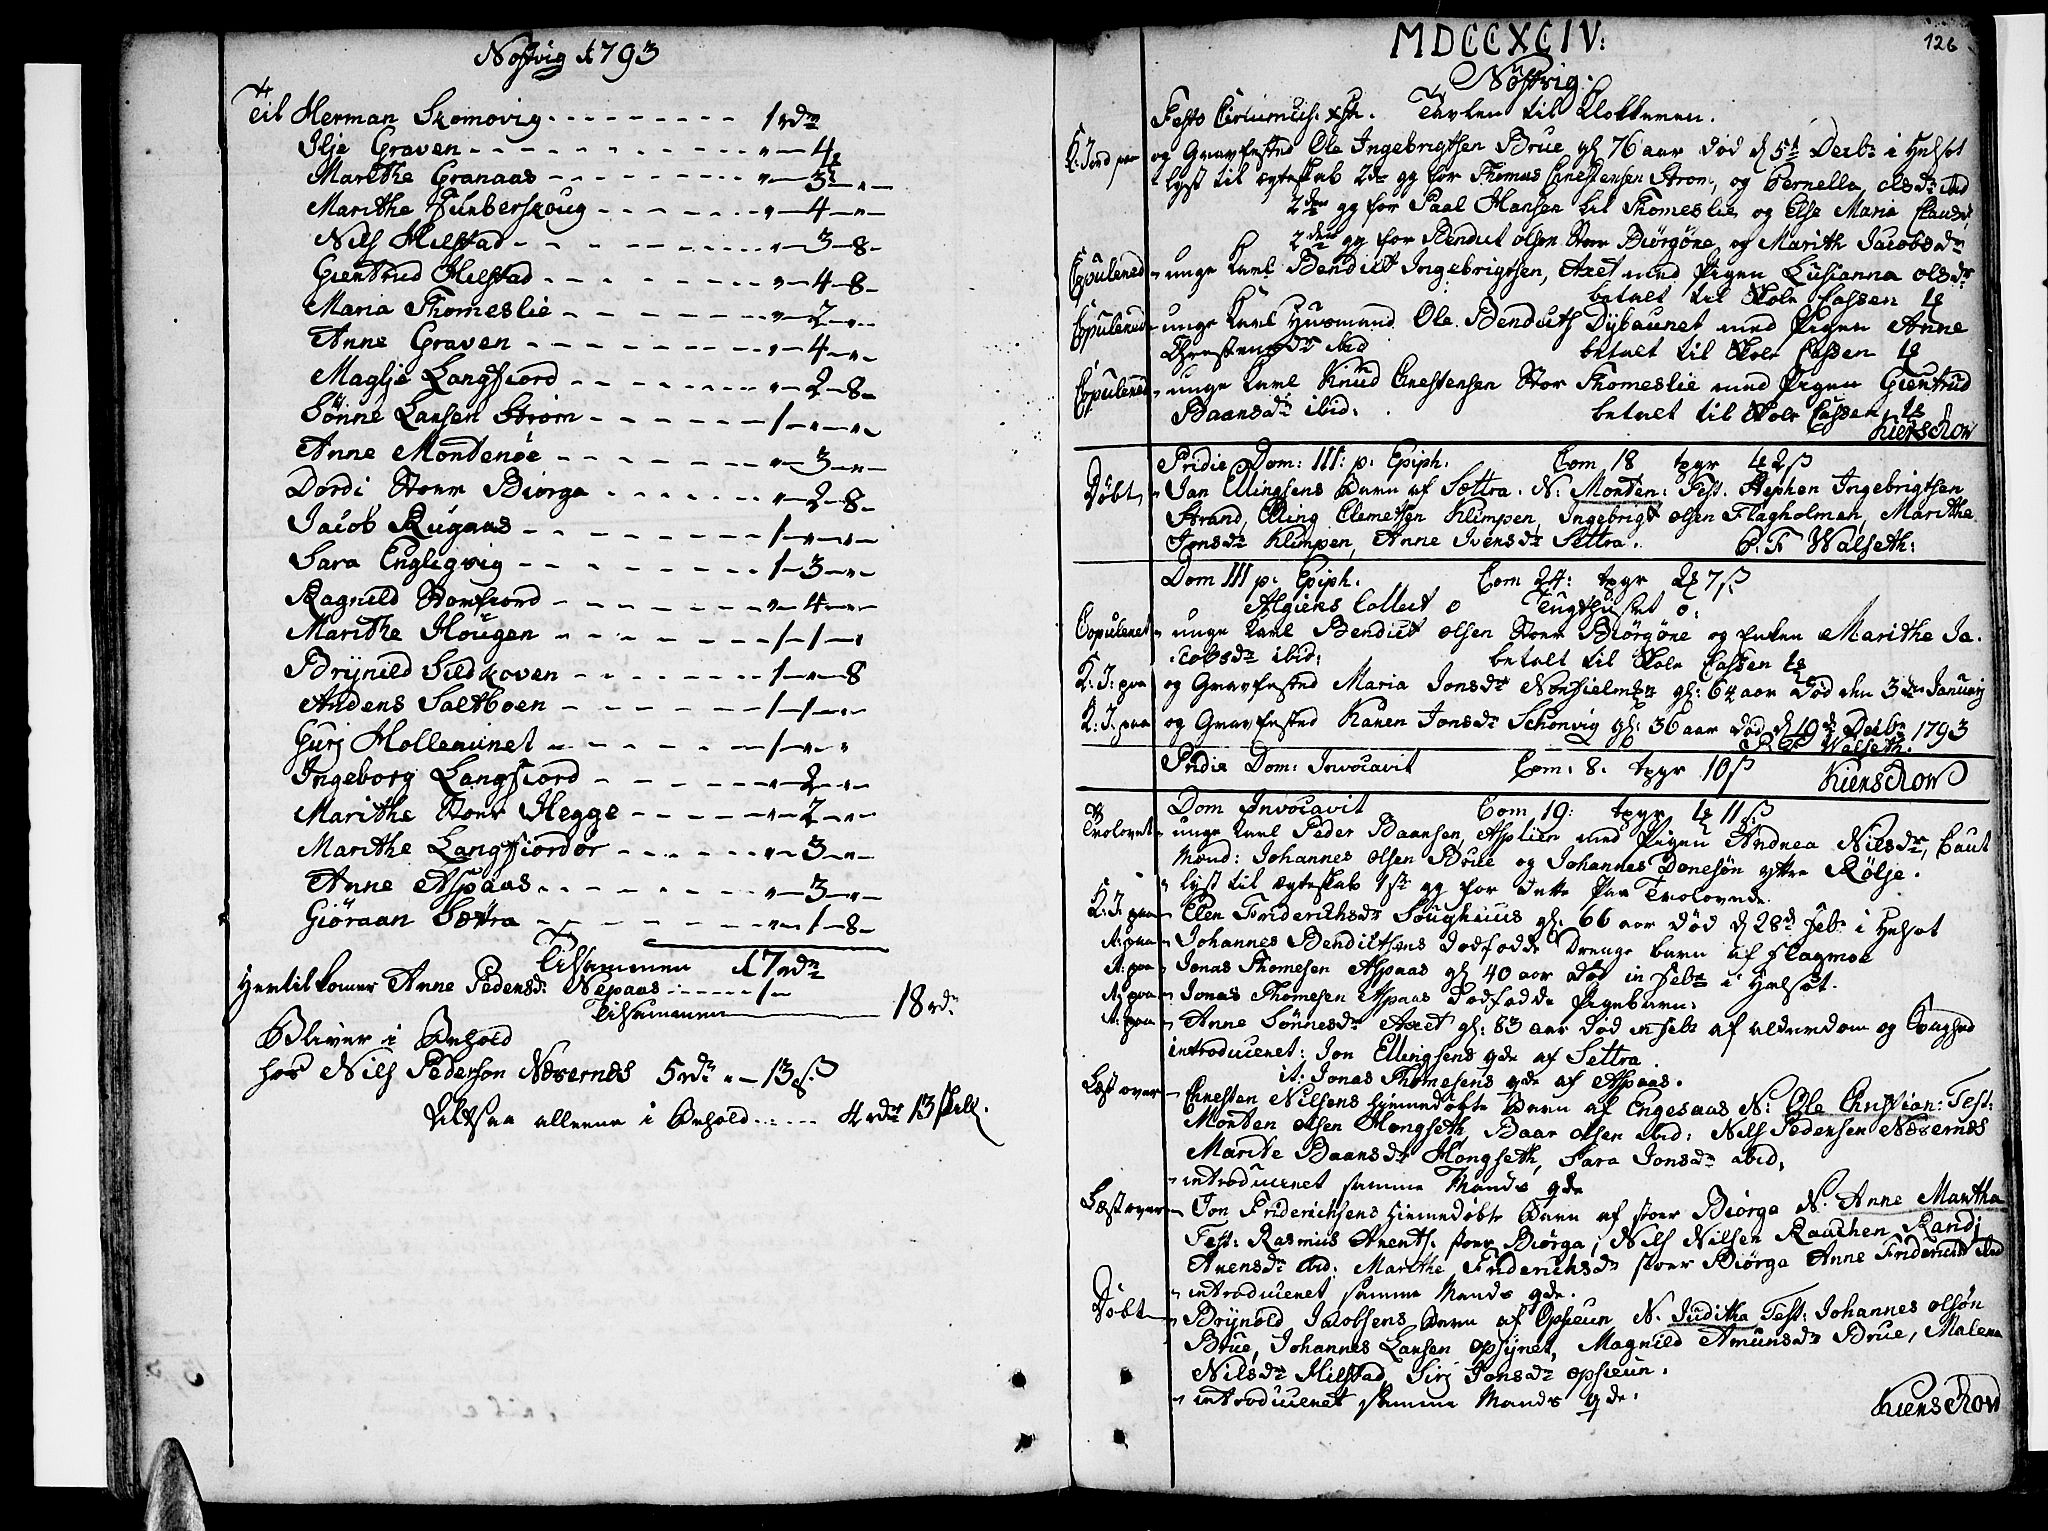 Nøstvig 1793
Til Herman Skomovig - - - - - - - - - 1 rdr
Ilje Graven - - - - - - - - - - " - 4
Marithe Granaas - - - - - - - - " - 3 - " -
Marithe Furberskoug - - - - - - " - 4 - " -
Nils Hilstad - - - - - - - - - " - 3 - 8 -
Giertrud Hilstad - - - - - - - " - 4 - 8 -
Maria Thomeslie - - - - - - - " - 2 - " -
Anne Graven - - - - - - - - - " - 4 - " -
Maglje Langfiord - - - - - - - " - 2 - 8 -
Sønne Larsen Strøm - - - - - - 1 - " - " -
Anne Mordenøe - - - - - - - - " - 3 - " -
Dordi Stoer Biørga - - - - - - " - 2 - 8 -
Jacob Rugaas - - - - - - - - 1 - " - " -
Sara Engligvig - - - - - - - - 1 - 3 - " -
Ragnild Storfiord - - - - - - - " - 4 - " -
Marithe Hougen - - - - - - - 1 - 1 - "
Brynild Sildkoven - - - - - - 1 - " - 8
Anders Saltboen - - - - - - - 1 - 1 - " -
Gurj Mollerunet - - - - - - - 1 - " - "
Ingeborg Langfiord - - - - - - " - 2 - " -
Marithe Stoer Hegge - - - - - " - 2 - " -
Marithe Langfiordør - - - - - " - 3 - " -
Anne Aspaas - - - - - - - - " - 3 - " -
Giøraan Sættra - - - - - - - " - 1 - 8 -
Tilsammen 17 rdr
Hertil komer Anne Pedersdr Nepaas - - - - 1 -
Tilsammen 18 rdr
Bliver i Behold
hos Nils Pederson Næsernes 5 rdr " - 13 ß
Altsaa alleene i Behold - - - - 4 rdr 13 skill.
MDCCXCIV:
126
Nøstvig:
Festo Circumcis: xsti. Tavlen til Klokkeren.
K: Jord paa og Gravfested Ole Ingebrigtsen Brue gl: 76 aar død d 5t Decbr i Helsot
lyst til ægteskab 2den gg for Thomas Christensen Strøm, og Pernella Olsdr ibid
2den gg for Paal Hansen lil Thomeslie og Else Maria Clausdr
2den gg for Bendict Olsen Stoer Biørgøne og Marith Jacobsdr
Copulered - unge Karl Bendict Ingebrigtsen, Axet med Pigen Lusianna Olsdr
betalt til Skole Cassen
Copulered - unge Karl Husmand Ole Bendicts Dybaunet med Pigen Anne
Christensdr ibid betalt til Skole Cassen
Copulered - unge Karl Knud Christensen Stor Thomeslie med Pigen Giertrud
Baarsdr ibid: betalt til Skole Cassen
Kierschow
Pridie Dom: III: p: Epiph. Com 18 tpgr 2 ß
Døbt - Jan Ellingsens Barn af Sættra. N: Morten: Test. Stephen Ingebrigtsen
Strand, Elling Clemetsen Klimpen, Ingebrigt Olsen Flagholman, Marithe
Jonsdr Klimpen, Anne Iversdr Settra. C. F Walseth:
Dom III p: Epiph. Com 24: tpgr 7 ß
Algiers Collect 0 Tugthuset 0:
Copuleret - unge Karl Bendict Olsen Stoer Biørgøne og Enken Marithe Ja-
cobsdr ibid: betalt til Skole Cassen
K: J: paa og Gravfested Maria Jonsdr gl: 64 aar død den 3die Januarij
K: J: paa og Gravfested Karen Jonsdr Schonvig gl: 36 aar død d 19de Decbr 1793
Walseth.
Pridie Dom: Invocavit Com: 8. tpgr 10 ß Kierschow
Dom Invocavit Com 19: tpgr 11 ß
Trolovet - unge Karl Peder Baarsen, Asplien med Pigen Andrea Nilsdr, Caut
Mænd: Johannes Olsen Brue og Johannes Donesøn ytter Rølje.
lyst til ægteskab 1ste gg for dette Par Trolovede.
K: J: paa - Elen Friderichsdr Soughuus gl: 66 aar død d 28d Febr i Helsot
K: paa - Johannes Bendictsens dødfødde Drenge barn af Flagmoe
K: paa - Jonas Thomesen Aspaas gl 40 aar død in Febr i Helsot.
K: paa - Jonas Thomesen Aspaas dødfødde Pigebarn:
K: paa - Anne Sønnesdr Axet gl: 83 aar død in Febr af alderdom og Svaghed
introduceret: Jon Ellingsens qde af Settra
it: Jonas Thomesens qde af Aspaas.
Læst over - Christen Nilsens hiemedøbte Barn af Engesaas N: Ole Christian: Test:
Morten Olsen Hongseth, Baar Olsen ibid: Nils Pedersen Næsernes
Marite Baarsdr Hongseth, Sara Jonsdr ibid,
- introduceret samme Mands qde
Læst over - Jon Friderichsens hiemedøbte Barn af stoer Biørga N. Anne Martha
Test: Rasmus Arents: stoer Biørga, Nils Nilsen Raachen, Randj
Arensdr ibid: Marithe Friderichsdr stoer Biørga Anne Friderichsdr ibid
- introduceret samme Mands qde.
Døbt - Brynold Jacobsens Barn af Opsieun N. Juditha Test: Johannes Olsøn
Brue, Johannes Larsen Opsynet, Magnild Amundsdr Brue, Malena
Nilsdr Hilstad, Sirj Jonsdr Opsieun.
- introduceret samme Mands qde:
Kierschow